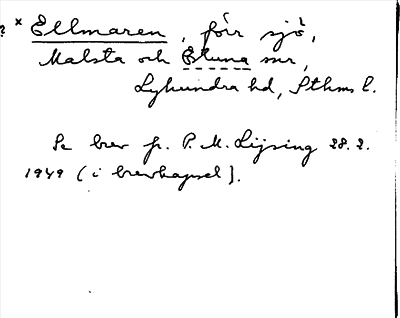 ? × Ellmaren, förr sjö,
Malsta och Estuna snr,
Lyhundra hd, Sthms l.
Se brev fr. P. M. Lijsing 28.2.
1949 (i brevkapsel).